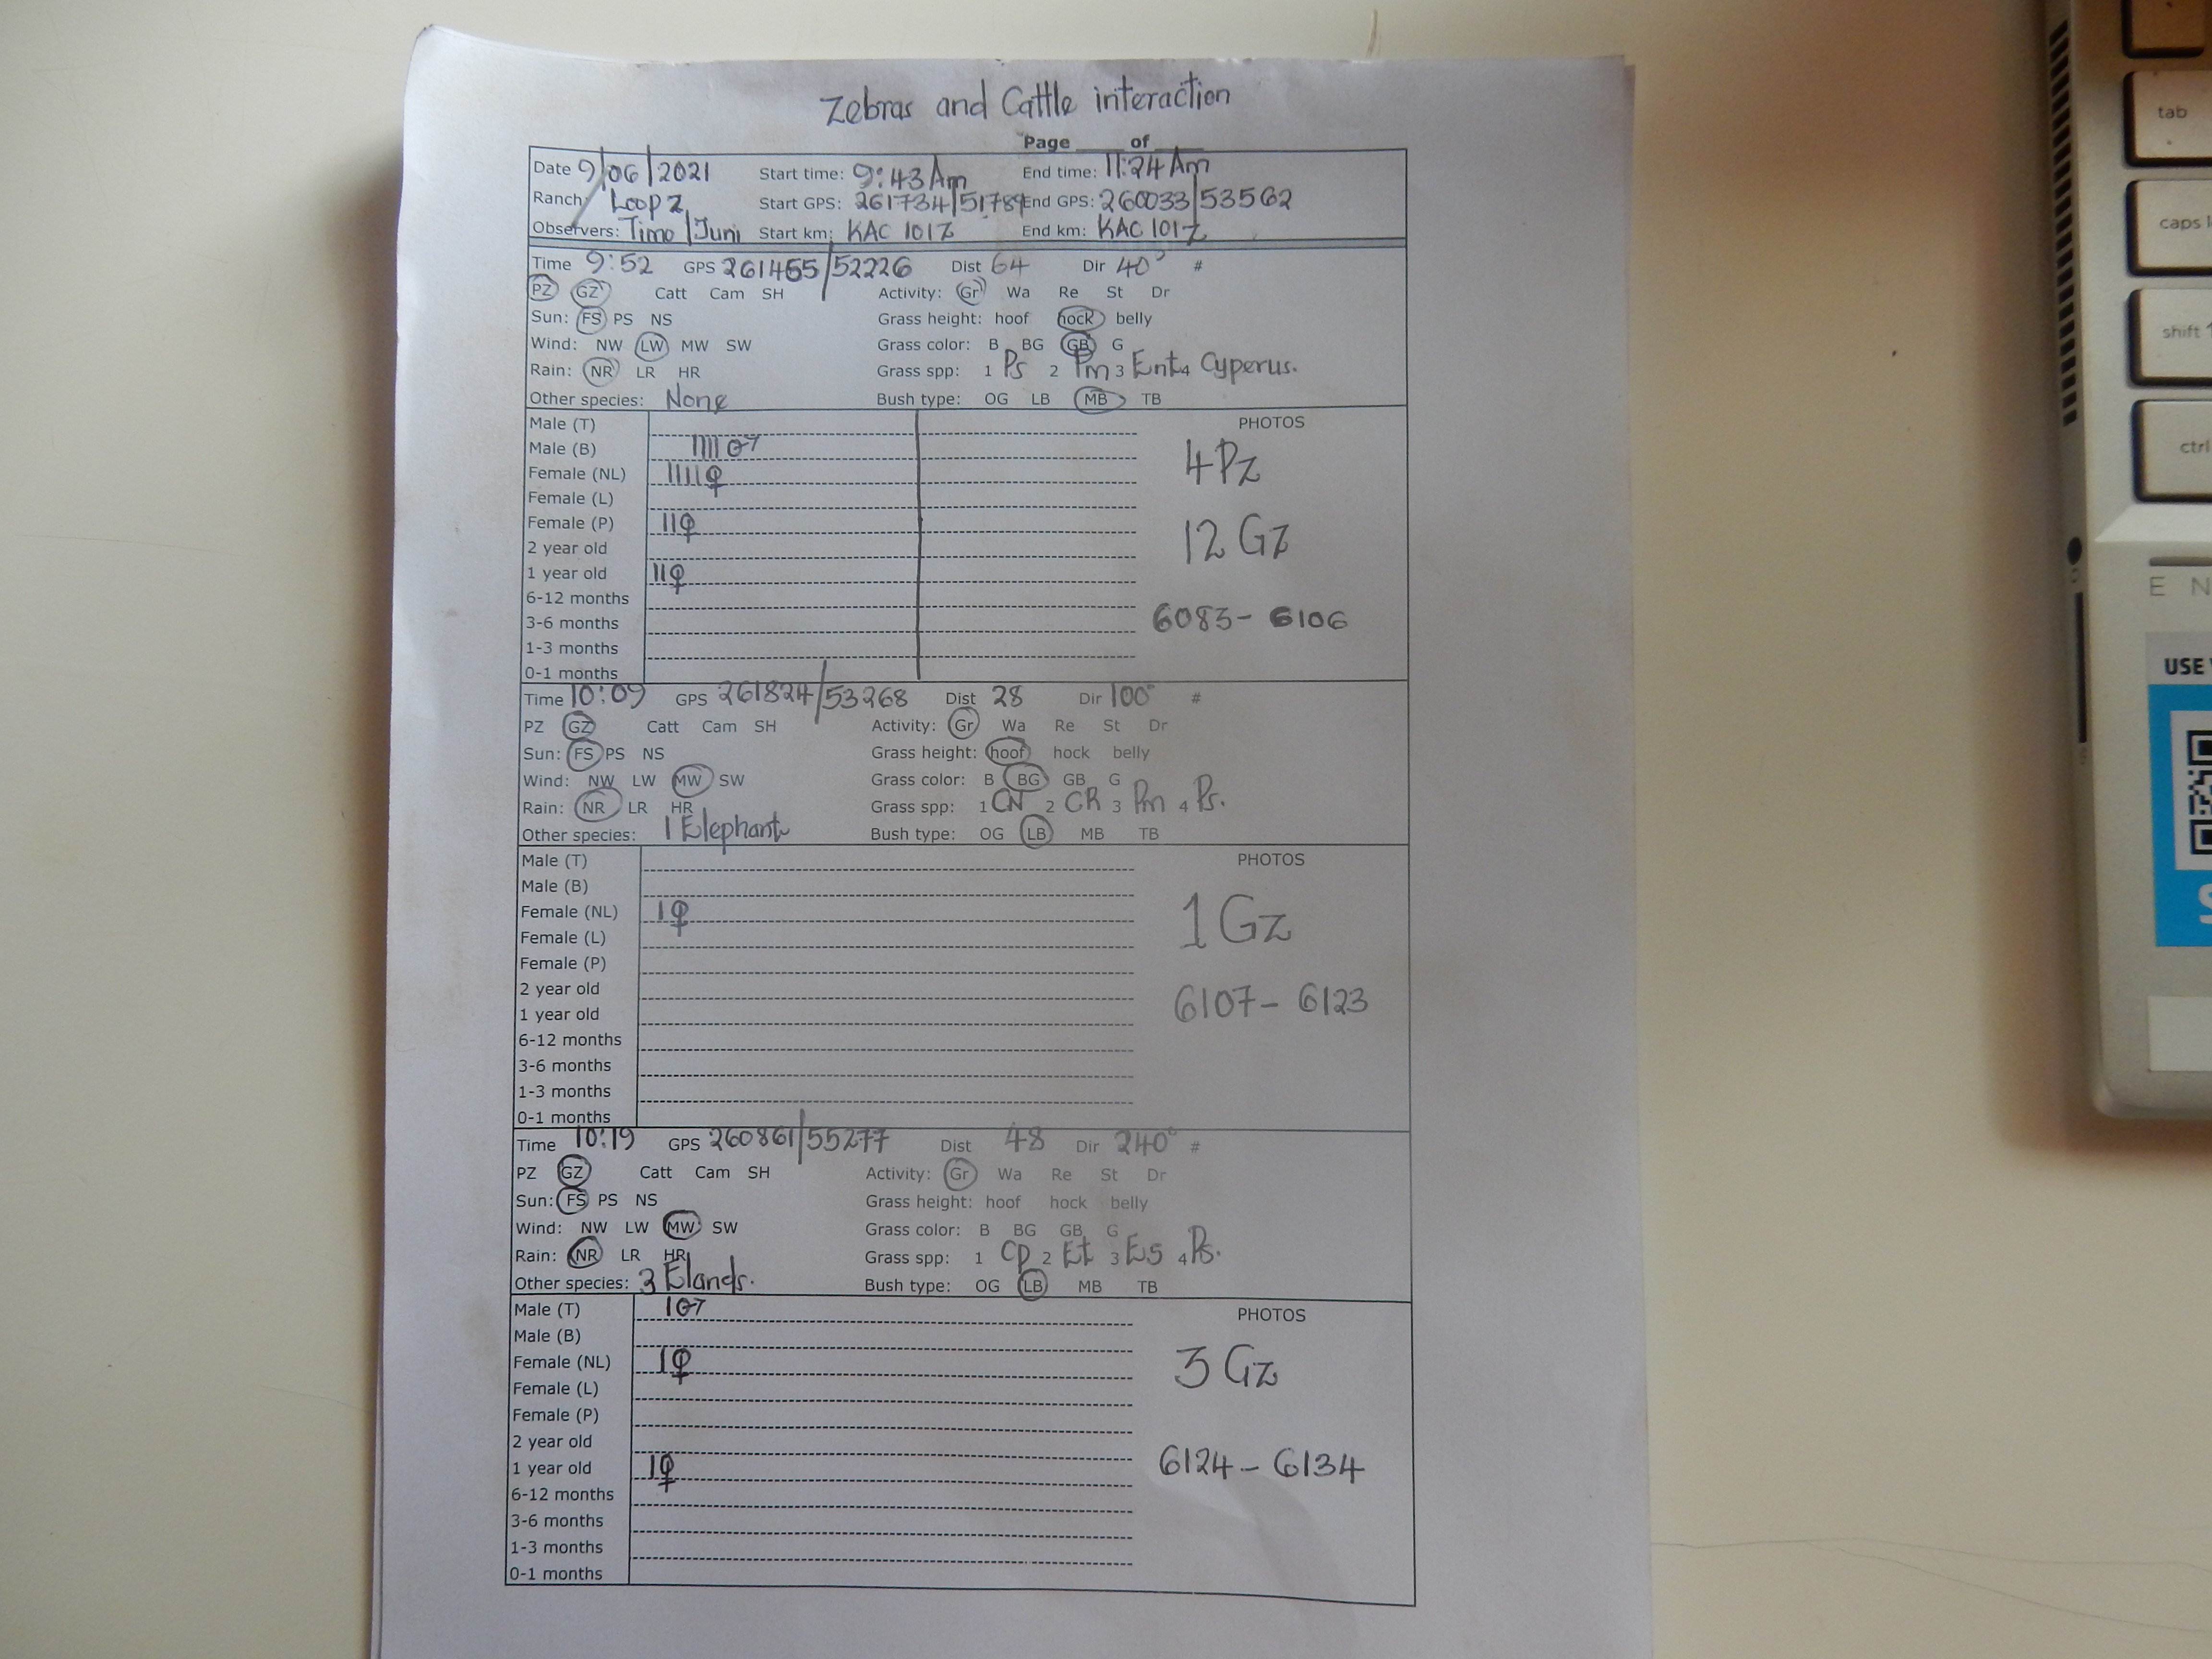 Zebras and Cattle interaction
Page ____ of ____
Date 9/06/2021 Start time: 9:43 Am End time: 11:24 Am
Ranch: Loop 2 Start GPS: 261734/51789 End GPS: 260033/53562
Observers: Timo/Juni Start km: KAC 101Z End km: KAC 101Z
Time 9:52 GPS 261455/52226 Dist 64 Dir 40° #
PZ GZ Catt Cam SH Activity: Gr Wa Re St Dr
Sun: FS PS NS Grass height: hoof hock belly
Wind: NW LW MW SW Grass color: B BG GB G
Rain: NR LR HR Grass spp: 1 Ps 2 Pm 3 Ent 4 Cyperus.
Other species: None Bush type: OG LB MB TB
Male (T) PHOTOS
Male (B) IIII ♂
4Pz
Female (NL) IIII ♀
Female (L)
Female (P) II ♀
12 Gz
2 year old
1 year old II ♀
6-12 months
3-6 months 6083- 6106
1-3 months
0-1 months
Time 10:09 GPS 261824/53268 Dist 28 Dir 100° #
PZ GZ Catt Cam SH Activity: Gr Wa Re St Dr
Sun: FS PS NS Grass height: hoof hock belly
Wind: NW LW MW SW Grass color: B BG GB G
Rain: NR LR HR Grass spp: 1 CN 2 CR 3 Pm 4 Ps.
Other species: 1 Elephant Bush type: OG LB MB TB
Male (T) PHOTOS
Male (B)
Female (NL) I ♀ 1 Gz
Female (L)
Female (P)
2 year old
6107- 6123
1 year old
6-12 months
3-6 months
1-3 months
0-1 months
Time 10:19 GPS 260861/55277 Dist 48 Dir 240° #
PZ GZ Catt Cam SH Activity: Gr Wa Re St Dr
Sun: FS PS NS Grass height: hoof hock belly
Wind: NW LW MW SW Grass color: B BG GB G
Rain: NR LR HR Grass spp: 1 Cp 2 Et 3 Es 4 Ps.
Other species: 3 Elands. Bush type: OG LB MB TB
Male (T) I ♂ PHOTOS
Male (B)
Female (NL) I ♀ 3 Gz
Female (L)
Female (P)
2 year old
1 year old I ♀ 6124- 6134
6-12 months
3-6 months
1-3 months
0-1 months
tab
caps
shift
ctrl
E N
USE
S